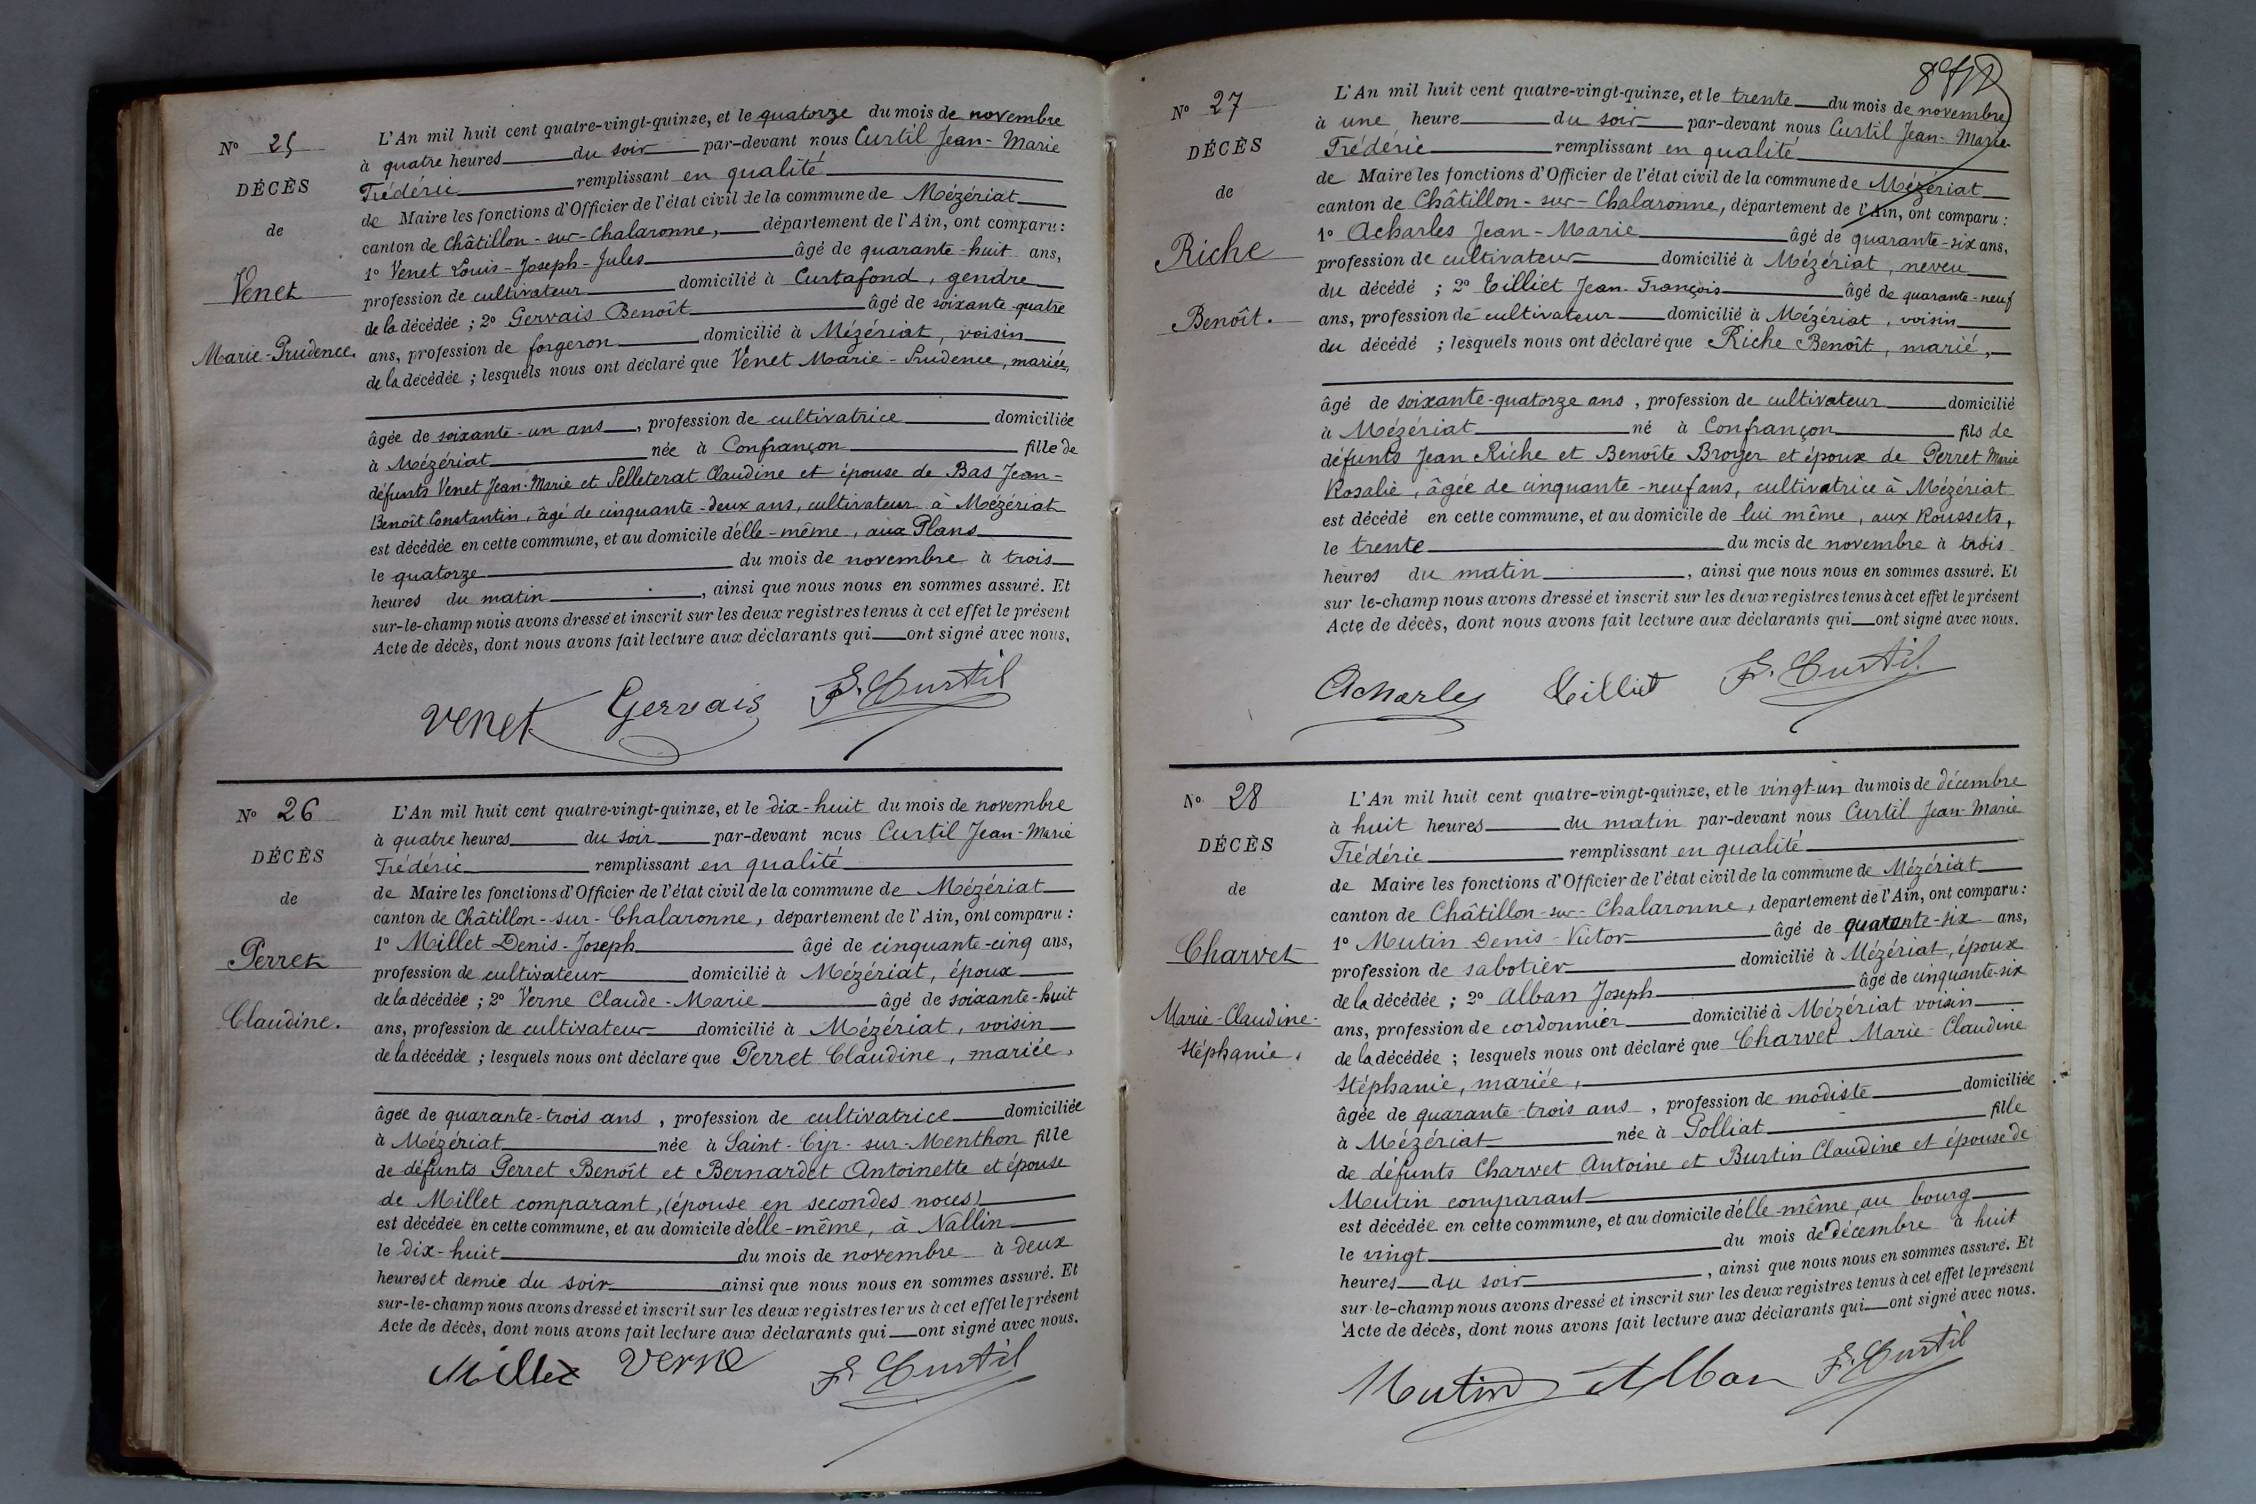 N° 25
DÉCÈS
de
Venet
Marie-Prudence.
L'An mil huit cent quatre-vingt-quinze, et le quatorze du mois de novembre
à quatre heures du soir par-devant nous Curtil Jean-Marie
Frédéric remplissant en qualité
de Maire les fonctions d'Officier de l'état civil de la commune de Mézériat
canton de Châtillon-sur-Chalaronne, département de l'Ain, ont comparu :
1° Venet Louis-Joseph-Jules âgé de quarante-huit ans,
profession de cultivateur domicilié à Curtafond, gendre
de la décédée ; 2° Gervais Benoît âgé de soixante-quatre
ans, profession de forgeron domicilié à Mézériat, voisin
de la décédée ; lesquels nous ont déclaré que Venet Marie-Prudence, mariée,
âgée de soixante-un ans, profession de cultivatrice domiciliée
à Mézériat née à Confrançon fille de
défunts Venet Jean-Marie et Pelleterat Claudine et épouse de Bas Jean-
Benoît Constantin, âgé de cinquante-deux ans, cultivateur à Mézériat
est décédée en cette commune, et au domicile d'elle-même, aux Plans
le quatorze du mois de novembre à trois
heures du matin, ainsi que nous nous en sommes assuré. Et
sur-le-champ nous avons dressé et inscrit sur les deux registres tenus à cet effet le présent
Acte de décès, dont nous avons fait lecture aux déclarants qui ont signé avec nous.
Venet Gervais F. Curtil
N° 26
DÉCÈS
de
Perret
Claudine.
L'An mil huit cent quatre-vingt-quinze, et le dix-huit du mois de novembre
à quatre heures du soir par-devant nous Curtil Jean-Marie
Frédéric remplissant en qualité
de Maire les fonctions d'Officier de l'état civil de la commune de Mézériat
canton de Châtillon-sur-Chalaronne, département de l'Ain, ont comparu :
1° Millet Denis-Joseph âgé de cinquante-cinq ans,
profession de cultivateur domicilié à Mézériat, époux
de la décédée ; 2° Verne Claude-Marie âgé de soixante-huit
ans, profession de cultivateur domicilié à Mézériat, voisin
de la décédée ; lesquels nous ont déclaré que Perret Claudine, mariée,
âgée de quarante-trois ans, profession de cultivatrice domiciliée
à Mézériat née à Saint-Cyr-sur-Menthon fille
de défunts Perret Benoît et Bernardet Antoinette et épouse
de Millet comparant, (épouse en secondes noces)
est décédée en cette commune, et au domicile d'elle-même, à Nallin
le dix-huit du mois de novembre à deux
heures et demie du soir ainsi que nous nous en sommes assuré. Et
sur-le-champ nous avons dressé et inscrit sur les deux registres tenus à cet effet le présent
Acte de décès, dont nous avons fait lecture aux déclarants qui ont signé avec nous.
Millet Verne F. Curtil
N° 27
DÉCÈS
de
Riche
Benoît.
L'An mil huit cent quatre-vingt-quinze, et le trente du mois de novembre
à une heure du soir par-devant nous Curtil Jean-Marie
Frédéric remplissant en qualité
de Maire les fonctions d'Officier de l'état civil de la commune de Mézériat
canton de Châtillon-sur-Chalaronne, département de l'Ain, ont comparu :
1° Acharles Jean-Marie âgé de quarante-six ans,
profession de cultivateur domicilié à Mézériat, neveu
du décédé ; 2° Tilliet Jean-François âgé de quarante-neuf
ans, profession de cultivateur domicilié à Mézériat, voisin
du décédé ; lesquels nous ont déclaré que Riche Benoît, marié,
âgé de soixante-quatorze ans, profession de cultivateur domicilié
à Mézériat né à Confrançon fils de
défunts Jean Riche et Benoîte Broyer et époux de Perret Marie
Rosalie, âgée de cinquante-neuf ans, cultivatrice à Mézériat
est décédé en cette commune, et au domicile de lui même, aux Roussets,
le trente du mois de novembre à trois
heures du matin, ainsi que nous nous en sommes assuré. Et
sur le-champ nous avons dressé et inscrit sur les deux registres tenus à cet effet le présent
Acte de décès, dont nous avons fait lecture aux déclarants qui ont signé avec nous.
Acharles Tilliet F. Curtil
N° 28
DÉCÈS
de
Charvet
Marie-Claudine-
Stéphanie.
L'An mil huit cent quatre-vingt-quinze, et le vingt-un du mois de décembre
à huit heures du matin par-devant nous Curtil Jean-Marie
Frédéric remplissant en qualité
de Maire les fonctions d'Officier de l'état civil de la commune de Mézériat
canton de Châtillon-sur-Chalaronne, département de l'Ain, ont comparu :
1° Mutin Denis-Victor âgé de quarante-six ans,
profession de sabotier domicilié à Mézériat, époux
de la décédée ; 2° Alban Joseph âgé de cinquante-six
ans, profession de cordonnier domicilié à Mézériat voisin
de la décédée ; lesquels nous ont déclaré que Charvet Marie-Claudine
Stéphanie, mariée,
âgée de quarante trois ans, profession de modiste domiciliée
à Mézériat née à Polliat fille
de défunts Charvet Antoine et Burtin Claudine et épouse de
Mutin comparant
est décédée en cette commune, et au domicile d'elle-même au bourg
le vingt du mois de décembre à huit
heures du soir, ainsi que nous nous en sommes assuré. Et
sur-le-champ nous avons dressé et inscrit sur les deux registres tenus à cet effet le présent
Acte de décès, dont nous avons fait lecture aux déclarants qui ont signé avec nous.
Mutin Alban F. Curtil